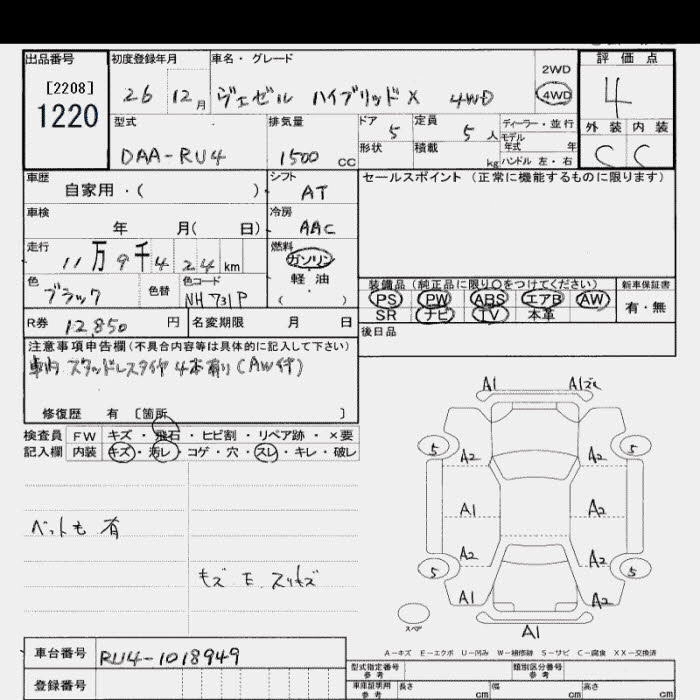 出品番号 初度登録年月 車名・グレード 評価点
[2208]
1220
26 12月 ヴェゼル ハイブリッドX 4WD
2WD
4WD
4
型式 排気量 ドア 定員 ディーラー・並行 外装 内装
DAA-RU4 1500 CC 5 5人 モデル年式 年
形状 積載 kg ハンドル 左・右 C C
車歴 シフト セールスポイント (正常に機能するものに限ります)
自家用・( ) AT
車検 冷房
年 月( 日) AAC
走行 燃料
11万9千424km ガソリン
軽油
( )
色 色替 色コード
ブラック NH731P
装備品(純正品に限り○をつけてください) 新車保証書
PS PW ABS エアB AW 有・無
SR ナビ TV 本革
R券 12,850円 名変期限 月 日
後日品
注意事項申告欄(不具合内容等は具体的に記入して下さい)
車内 スタッドレスタイヤ4本有り(AW付)
修復歴 有 [箇所 ]
検査員 FW キズ・飛石・ヒビ割・リペア跡・×要
記入欄 内装 キズ・汚レ・コゲ・穴・スレ・キレ・破レ
有
A1 A1
5 A2 A2 5
A1 A2
A2 A2
5 5
A1 A2
スペア
A1
A－キズ E－エクボ U－凹み W－補修跡 S－サビ C－腐食 XX－交換済
車台番号 RU4-1018949
登録番号
型式指定番号 参考 類別区分番号 参考
車庫証明用 参考 長さ cm 幅 cm 高さ cm